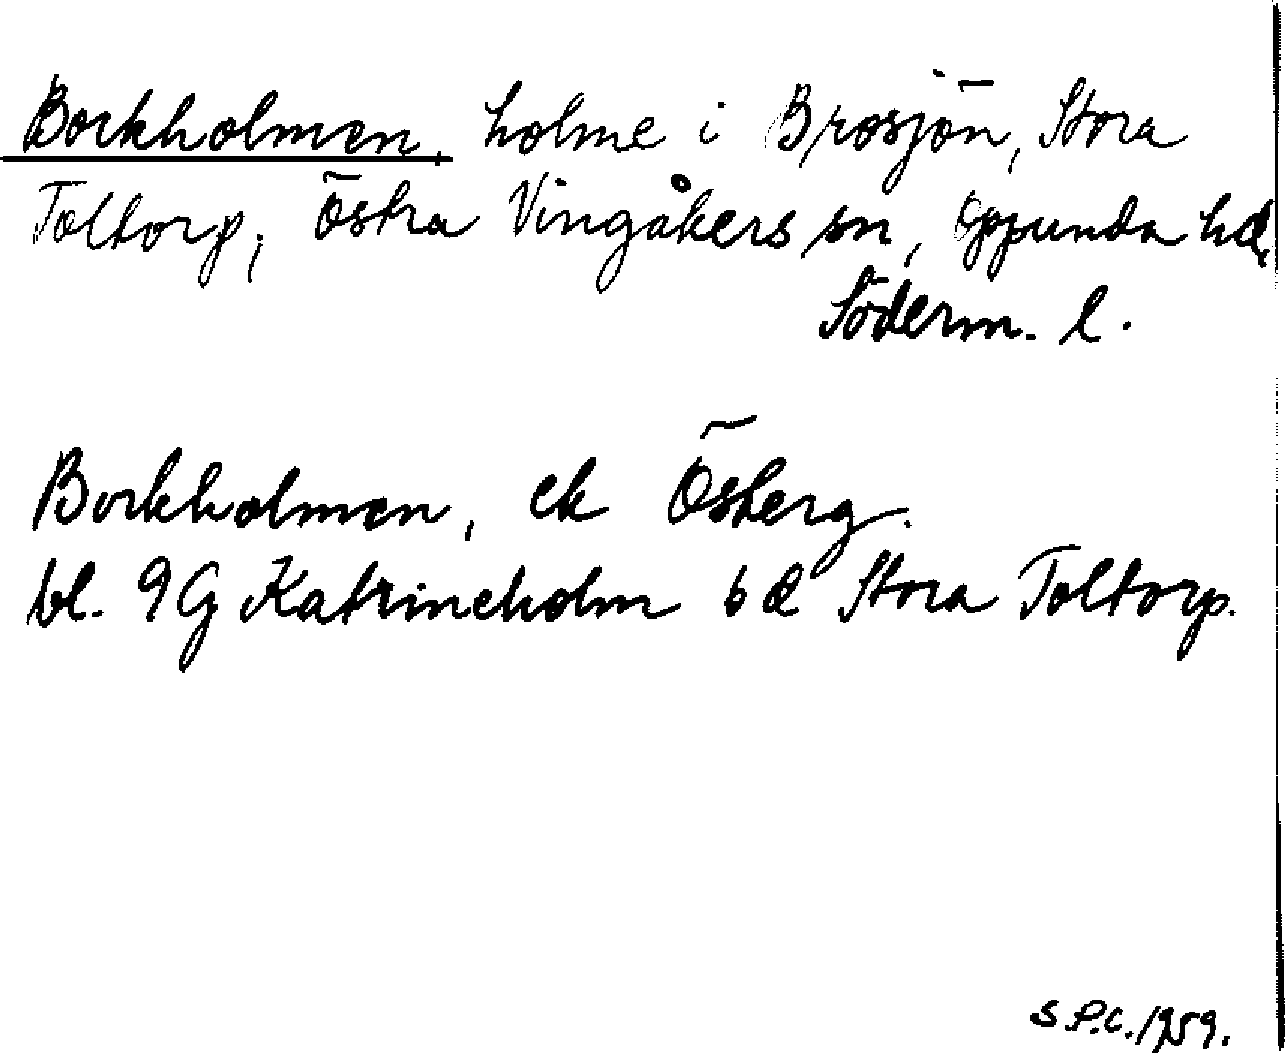 Borkholmen, holme i Brosjön, Stora
Toltorp, Östra Vingåkers sn, Oppunda hd,
Söderm. l.
Borkholmen, ek Österg.
bl. 9G Katrineholm 6d Stora Toltorp.
S.P.C. 1959.